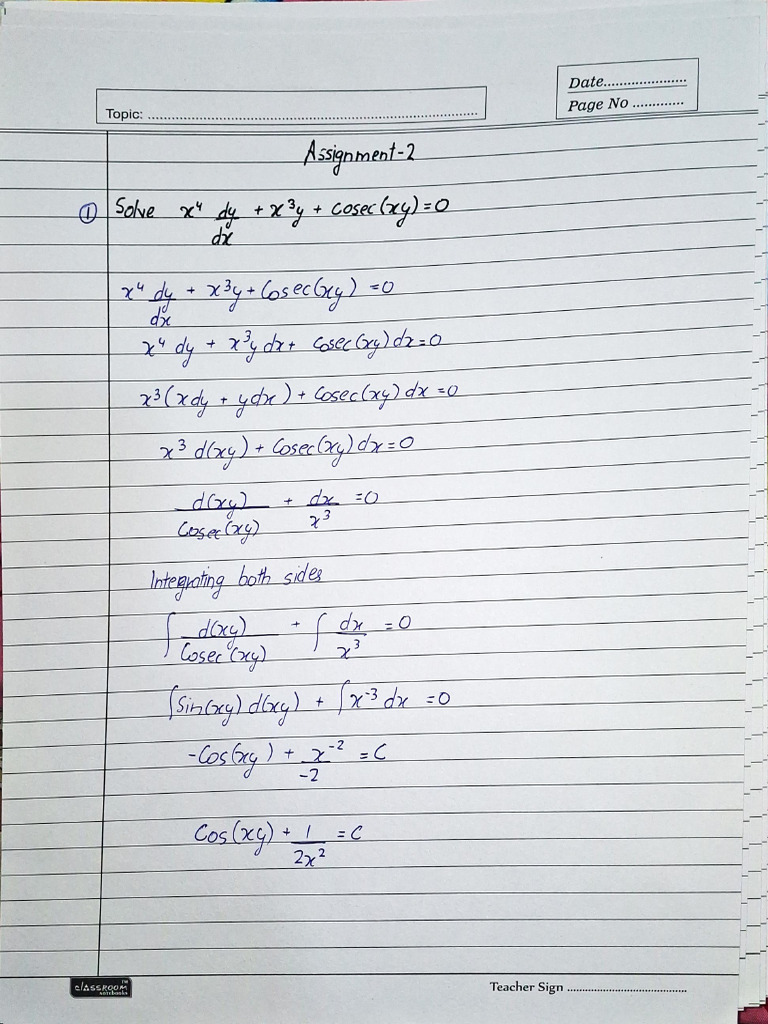 Date.....................
Page No .............
Topic: ....................................................................................
Assignment-2
① Solve x⁴ dy/dx + x³y + cosec(xy)=0
x⁴ dy/dx + x³y + Cosec(xy) =0
x⁴ dy + x³y dx + cosec(xy) dx=0
x³(xdy + ydx) + Cosec(xy) dx =0
x³ d(xy) + Cosec(xy)dx=0
d(xy)/Cosec(xy) + dx/x³ =0
Integrating both sides
∫ d(xy)/Cosec(xy) + ∫ dx/x³ =0
∫Sin(xy) d(xy) + ∫x⁻³ dx =0
-Cos(xy) + x⁻²/-2 = C
Cos(xy) + 1/2x² = C
classroom™
notebooks
Teacher Sign ........................................